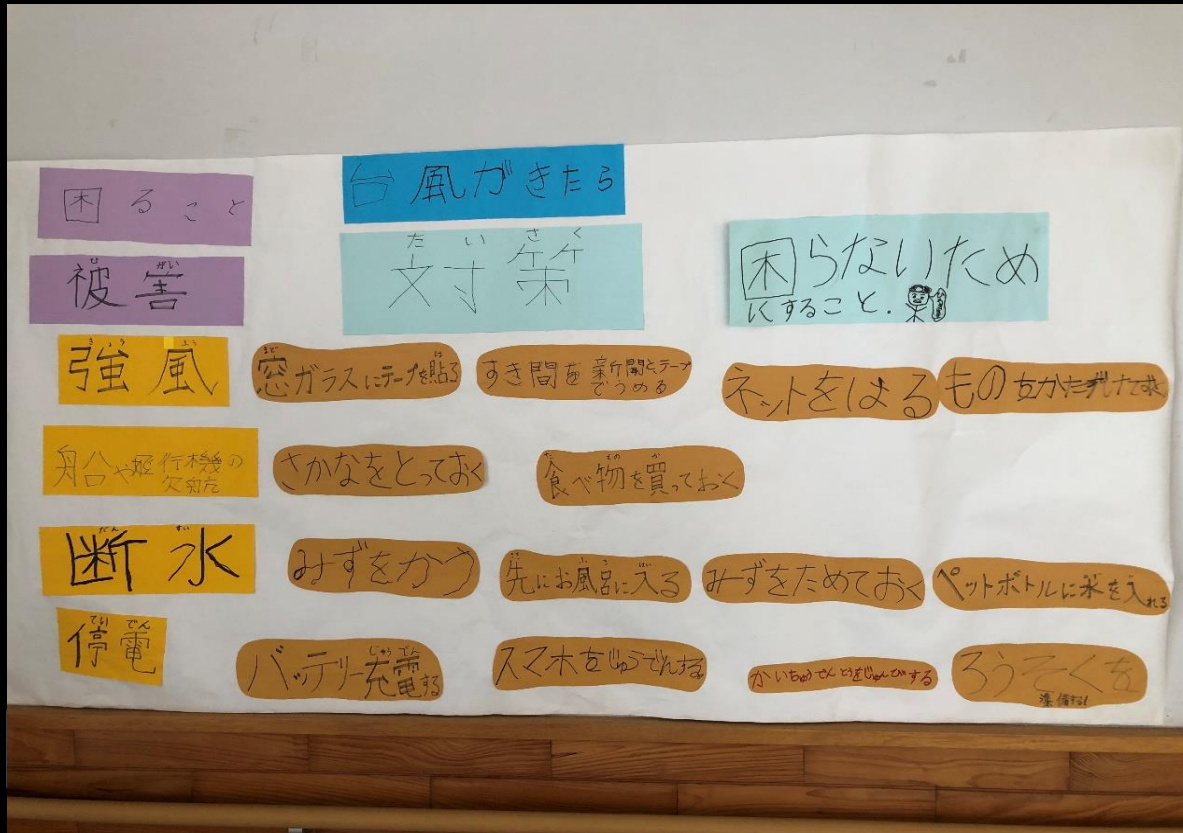 困ること
台風がきたら
被害
対策
困らないため
にすること.
強風
窓ガラスにテープを貼る
すき間を新聞とテープ
でうめる
ネットをはる
もの
船や飛行機の
欠航
さかなをとっておく
食べ物を買っておく
断水
みずをかう
先にお風呂に入る
みずをためておく
ペットボトルに水を入れる
停電
バッテリー充電する
スマホをじゅうでんする
かいちゅうでんとうをじゅんびする
ろうそくを
準備する!